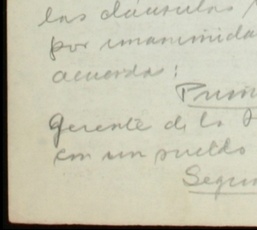 las cláusulas
por unanimida
acuerda:
Prim
Gerente de la
con un sueldo
Segun